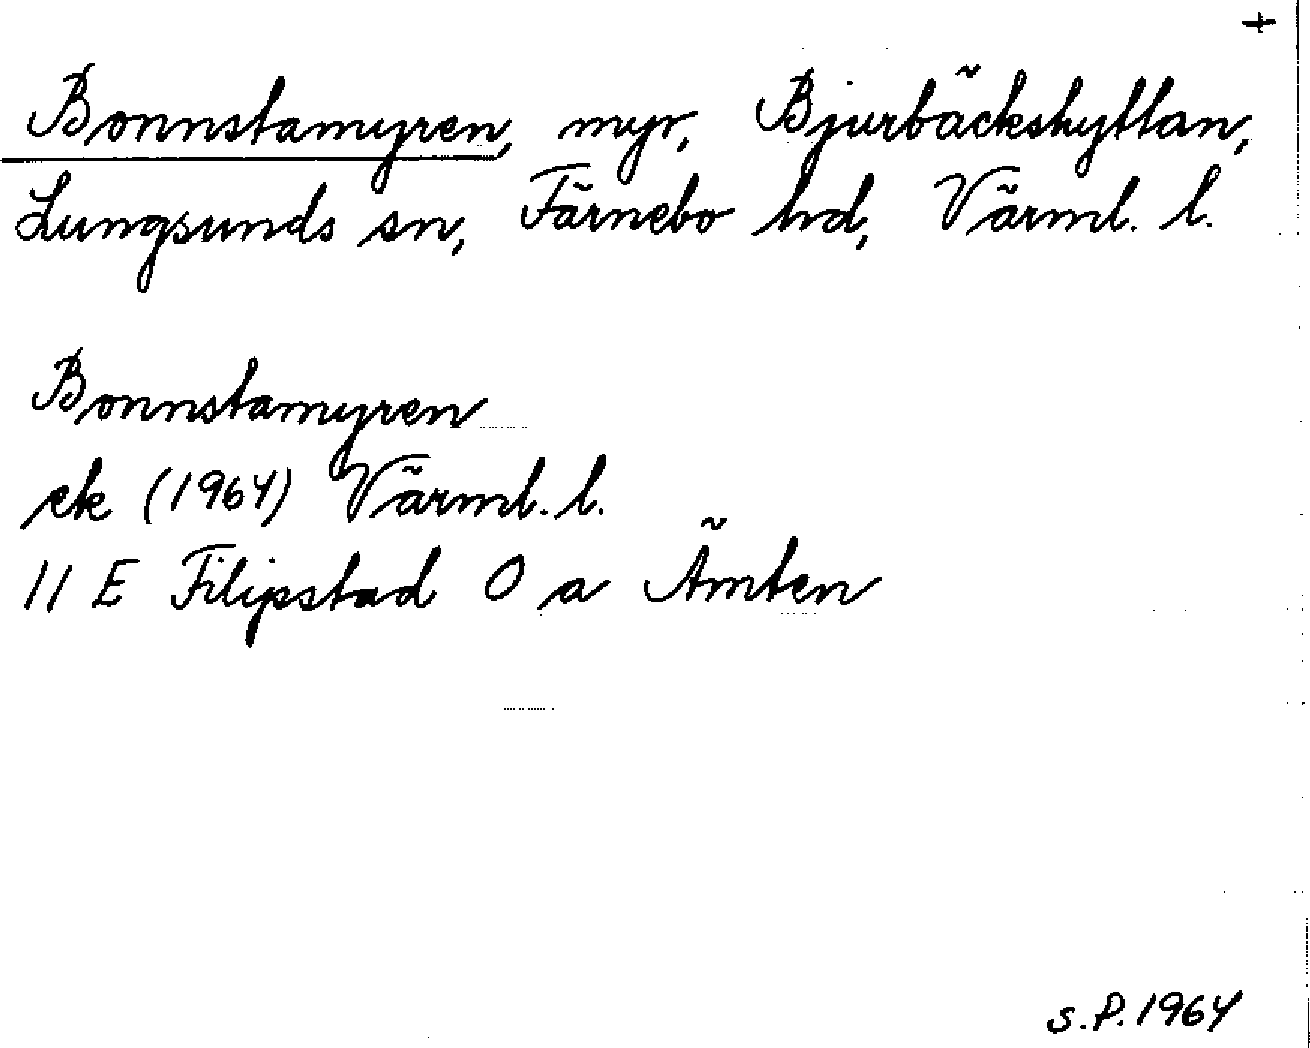 +
Bonnstamyren, myr, Bjurbäckshyttan,
Lungsunds sn, Färnebo hd, Värml. l.
Bonnstamyren
ek (1964) Värml. l.
11 E Filipstad 0 a Ämten
S.P. 1964